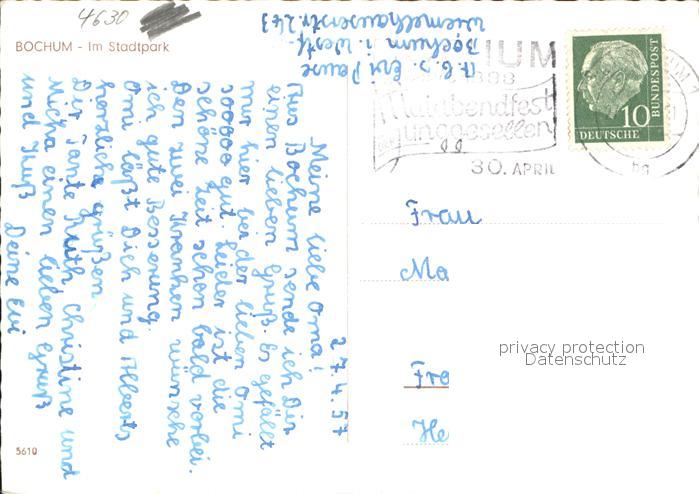 4630
BOCHUM - Im Stadtpark
27.4.57
Meine liebe Oma!
Aus Bochum sende ich Dir
einen lieben Gruß. Es gefällt
mir hier bei der lieben Omi
sooooo gut. Leider ist die
schöne Zeit schon bald vorbei.
Den zwei Kranken wünsche
ich gute Besserung.
Omi läßt Dich und Alberts
herzlichs grüßen.
Dir Tante Ruth Christine und
Micha einen lieben Gruß
und Kuß
Deine Evi
5610
Bochum i. Westf.
Wiemelhauserstr. 243
HUM
Maiabendfest
Junggesellen
30. APRIL
10
DEUTSCHE
BUNDESPOST
Frau
Ma
Fro
He
privacy protection
Datenschutz